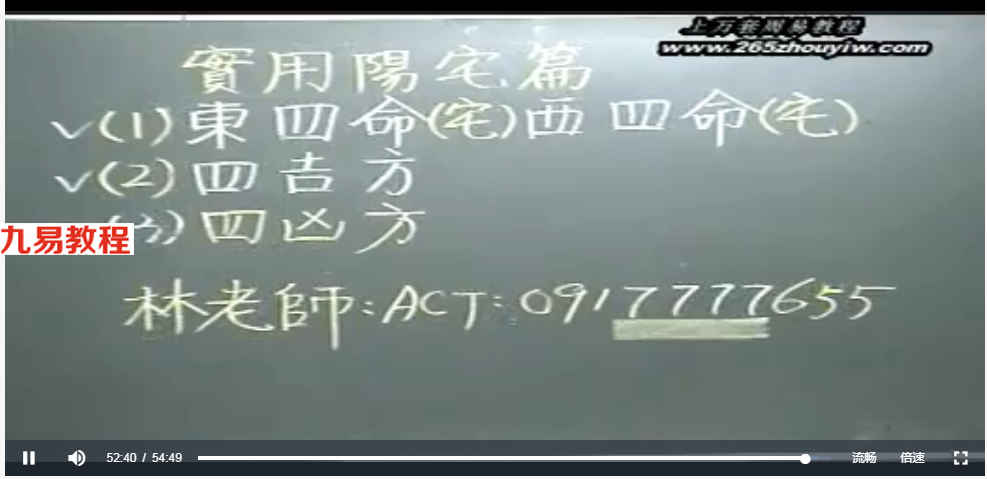 上万套周易教程
www.265zhouyiw.com
實用陽宅篇
✓(1)東四命(宅)西四命(宅)
✓(2)四吉方
(3)四凶方
九易教程
林老師:ACT:0917777655
52:40 / 54:49
流畅
倍速